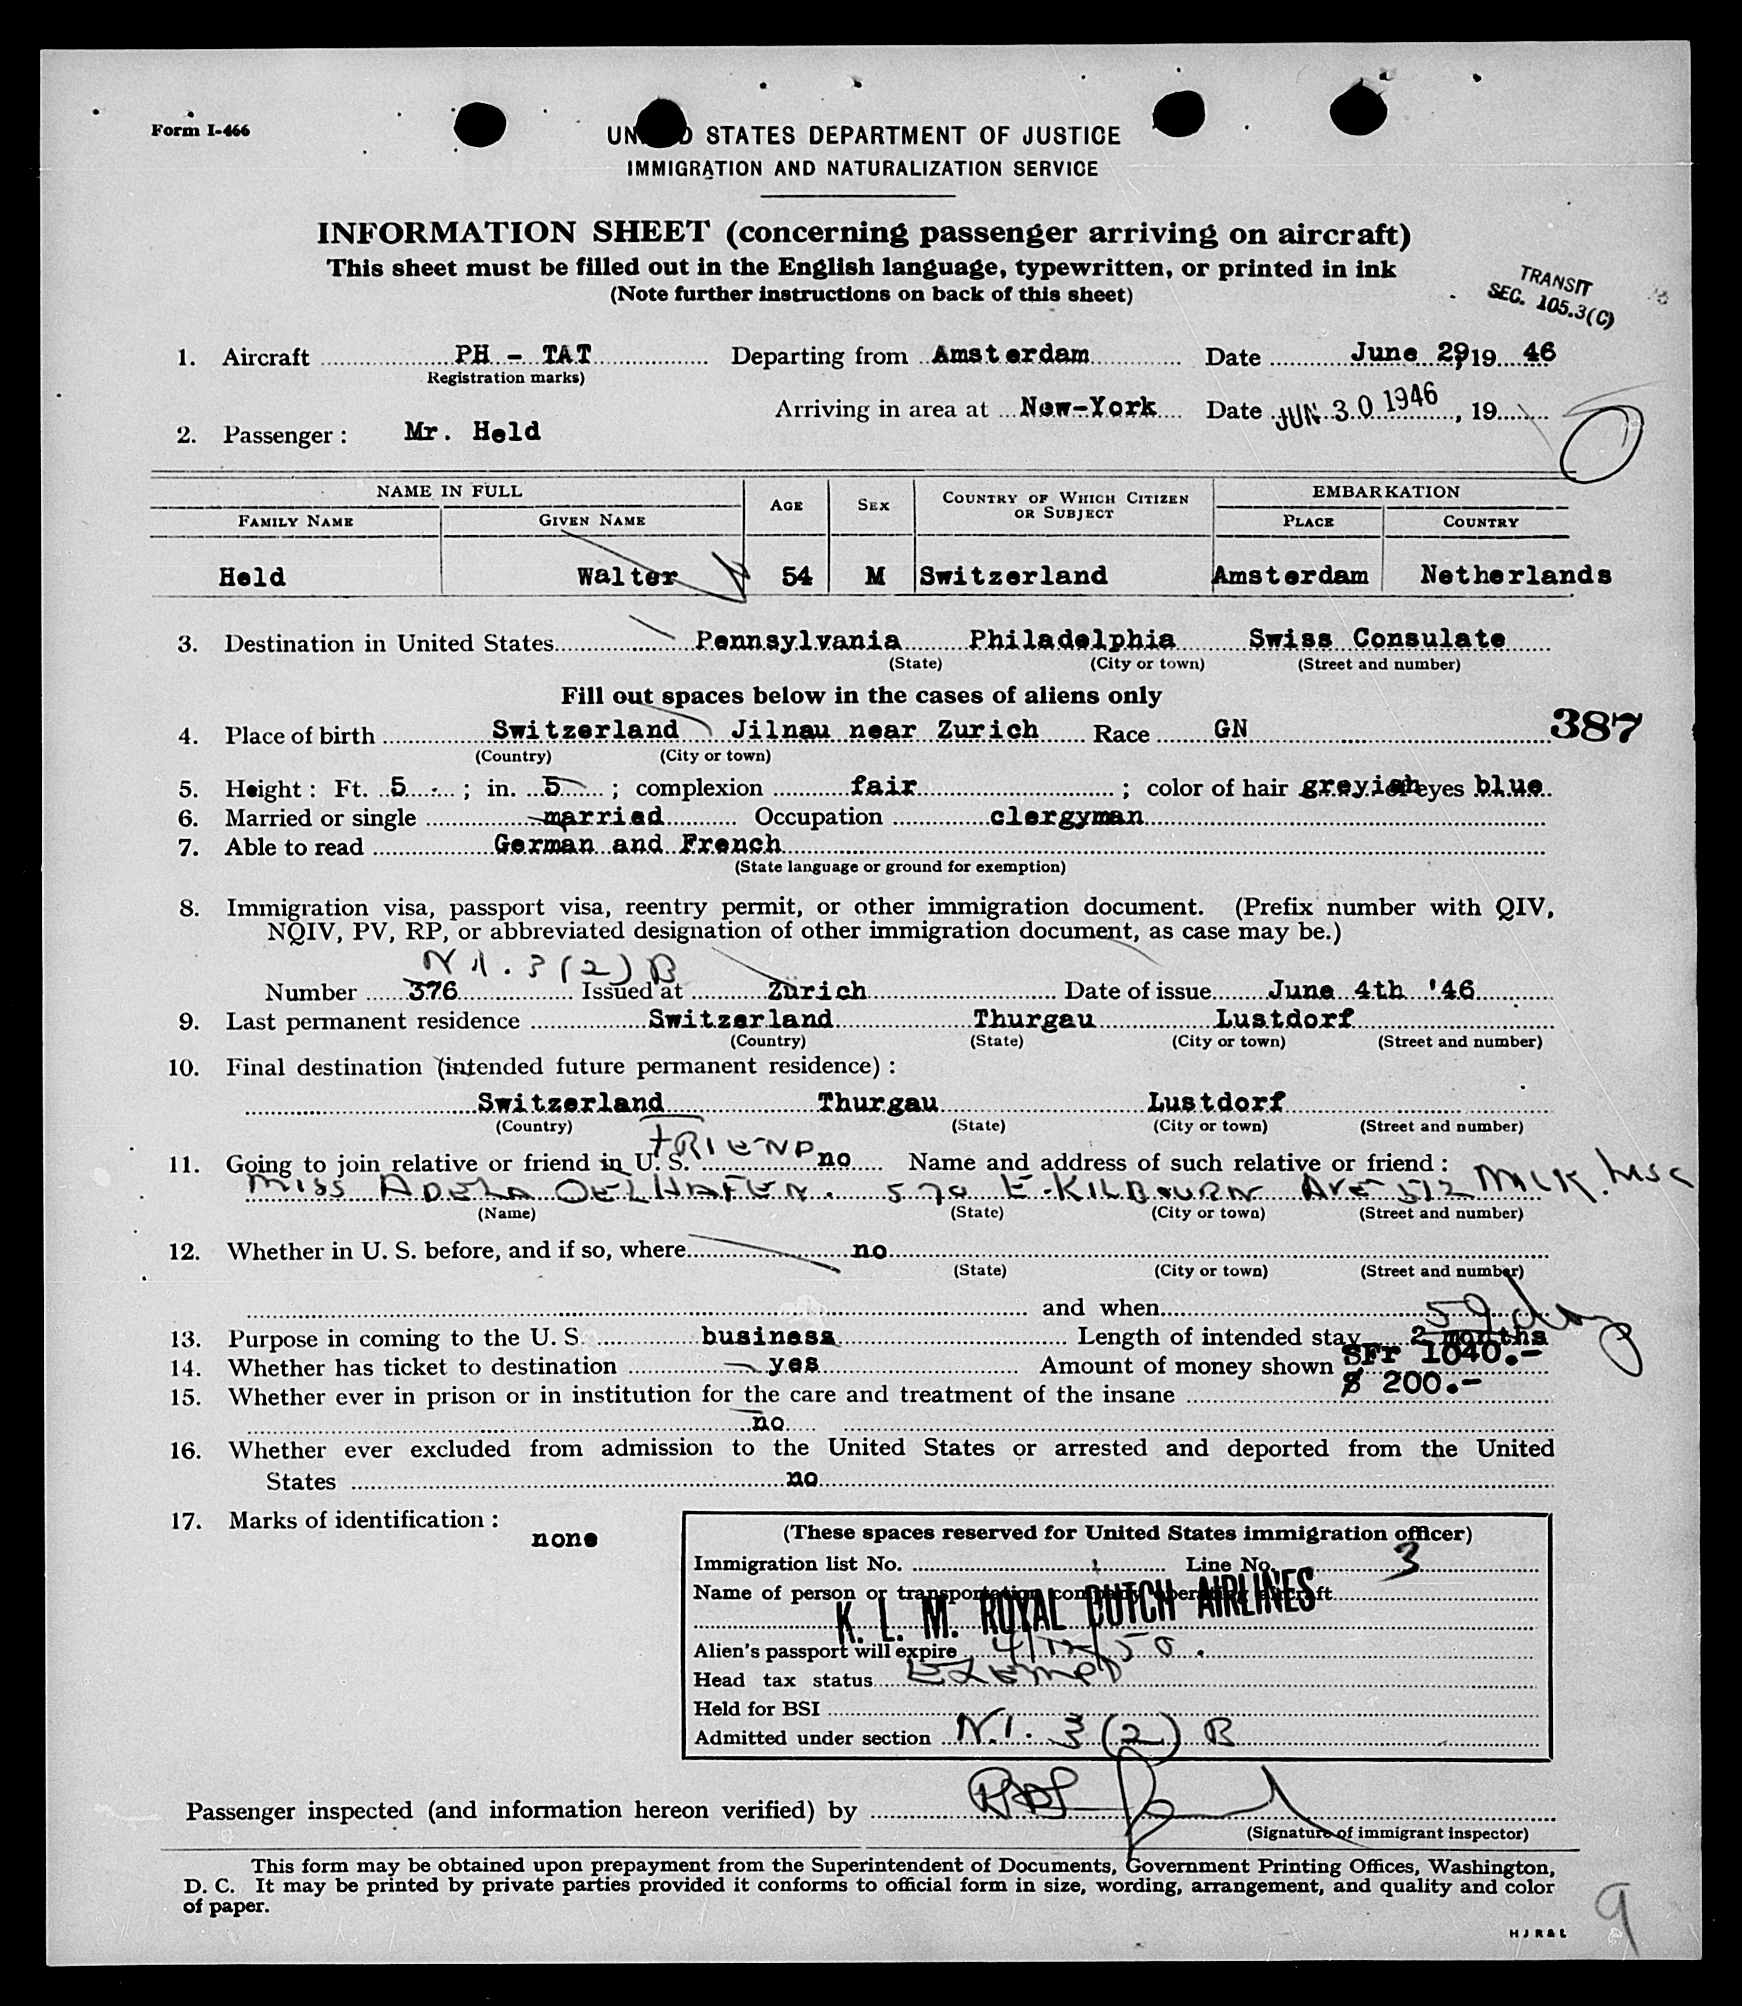 Form I-466
UNITED STATES DEPARTMENT OF JUSTICE
IMMIGRATION AND NATURALIZATION SERVICE
INFORMATION SHEET (concerning passenger arriving on aircraft)
This sheet must be filled out in the English language, typewritten, or printed in ink
(Note further instructions on back of this sheet)
TRANSIT
SEC. 105.3(C)
1. Aircraft PH - TAT Departing from Amsterdam Date June 29, 19 46
Registration marks)
Arriving in area at New-York Date JUN 30 1946, 19
2. Passenger: Mr. Held
NAME IN FULL AGE SEX COUNTRY OF WHICH CITIZEN OR SUBJECT EMBARKATION
FAMILY NAME GIVEN NAME PLACE COUNTRY
Held Walter 54 M Switzerland Amsterdam Netherlands
3. Destination in United States Pennsylvania Philadelphia Swiss Consulate
(State) (City or town) (Street and number)
Fill out spaces below in the cases of aliens only
4. Place of birth Switzerland Jilnau near Zurich Race GN 387
(Country) (City or town)
5. Height: Ft. 5 ; in. 5 ; complexion fair ; color of hair greyish eyes blue
6. Married or single married Occupation clergyman
7. Able to read German and French
(State language or ground for exemption)
8. Immigration visa, passport visa, reentry permit, or other immigration document. (Prefix number with QIV,
NQIV, PV, RP, or abbreviated designation of other immigration document, as case may be.)
N.I. 3 (2) B
Number 376 Issued at Zürich Date of issue June 4th '46
9. Last permanent residence Switzerland Thurgau Lustdorf
(Country) (State) (City or town) (Street and number)
10. Final destination (intended future permanent residence):
Switzerland Thurgau Lustdorf
(Country) (State) (City or town) (Street and number)
FRIEND
11. Going to join relative or friend in U. S. no Name and address of such relative or friend:
MISS ADELA OELHAFEN. 570 E. KILBOURN AVE 512 MILK.
(Name) (State) (City or town) (Street and number)
12. Whether in U. S. before, and if so, where no
(State) (City or town) (Street and number)
and when
59 days
13. Purpose in coming to the U. S. business Length of intended stay 2 months
14. Whether has ticket to destination yes Amount of money shown SFr 1040.-
15. Whether ever in prison or in institution for the care and treatment of the insane $ 200.-
no
16. Whether ever excluded from admission to the United States or arrested and deported from the United
States no
17. Marks of identification:
none
(These spaces reserved for United States immigration officer)
Immigration list No. 1 Line No. 3
Name of person or transportation company operating aircraft
K. L. M. ROYAL DUTCH AIRLINES
Alien's passport will expire 4/12/50.
Head tax status Exempt
Held for BSI
Admitted under section N.I. 3 (2) B
Passenger inspected (and information hereon verified) by
(Signature of immigrant inspector)
This form may be obtained upon prepayment from the Superintendent of Documents, Government Printing Offices, Washington,
D. C. It may be printed by private parties provided it conforms to official form in size, wording, arrangement, and quality and color
of paper.
H J R & L
9